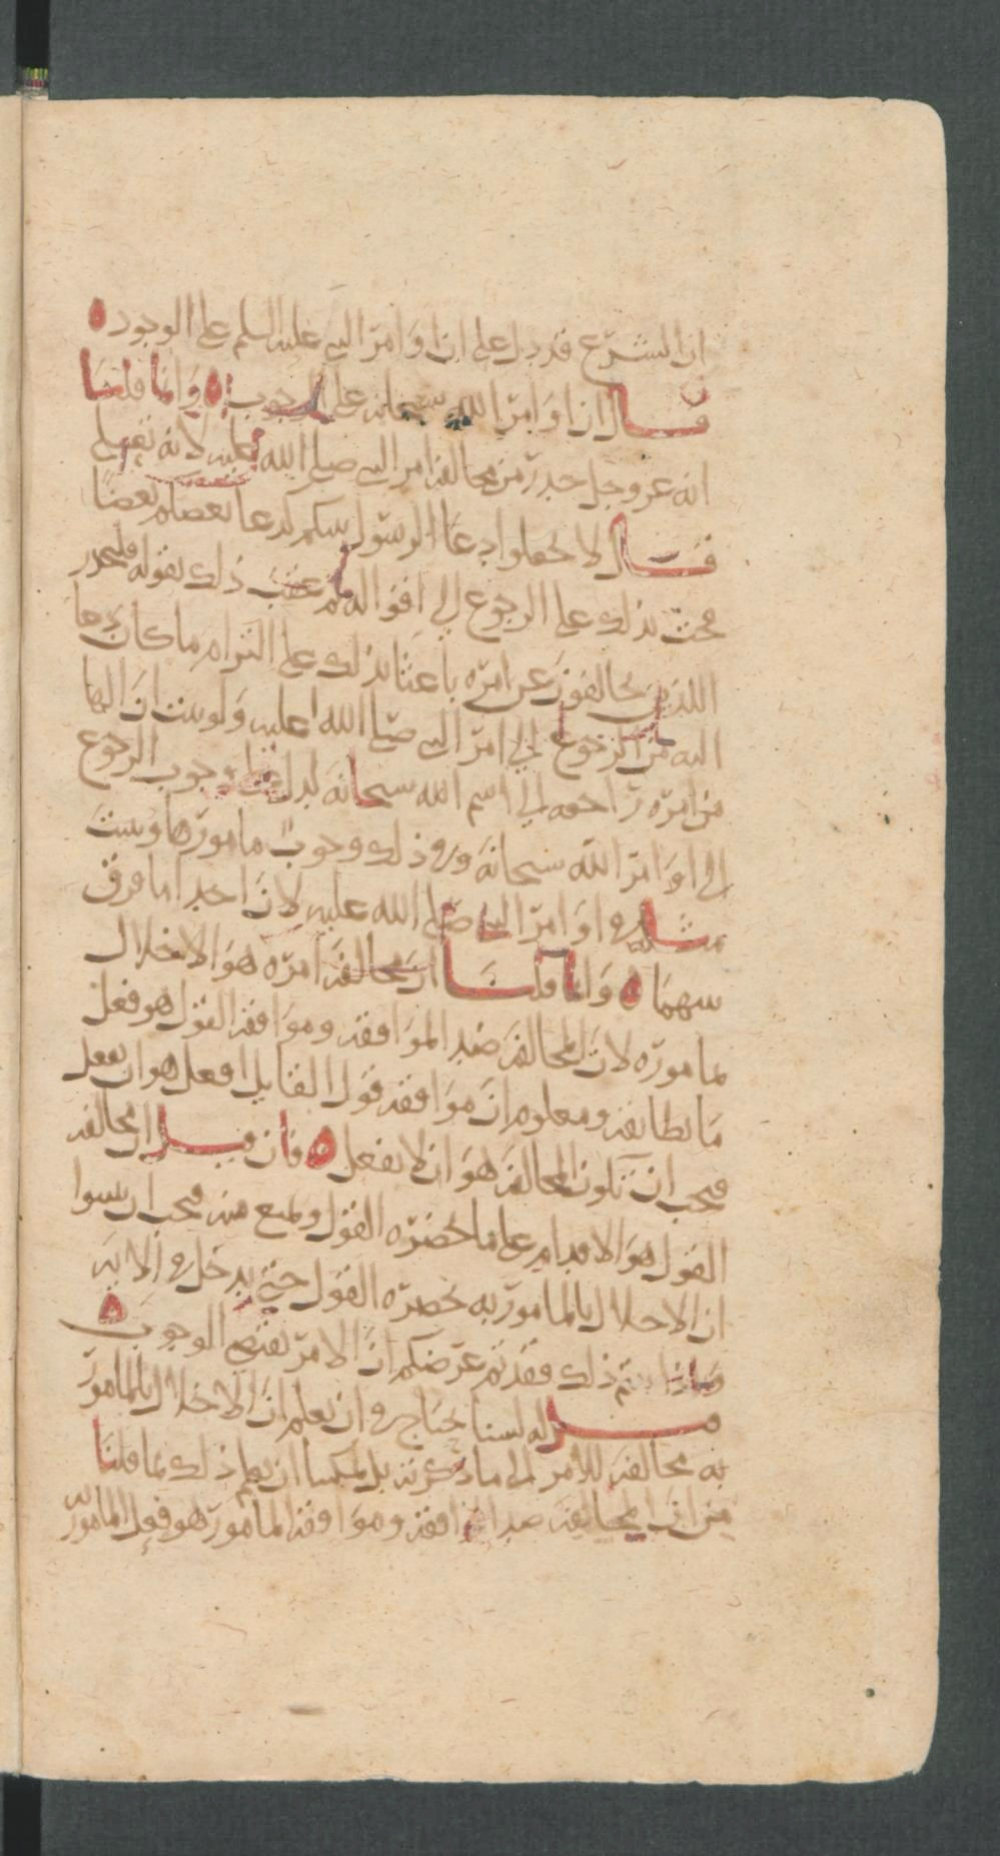 ان الشرع قد دل على ان اوامر النبي عليه السلم على الوجوب
قال ان اوامر الله سبحانه على الوجوب وانما قلنا
انه عز وجل حذر من مخالفة امر النبي صلى الله عليه لانه تعالى
قال لا تجعلوا دعا الرسول بينكم كدعا بعضكم بعضا
فحث بذلك على الرجوع الى اقواله ثم عقب ذلك بقوله فليحذر
الذين يخالفون عن امره باعثا بذلك على التزام ما كان دعا
اليه من الرجوع الى امر النبي صلى الله عليه ولو ثبت ان الها
من امره راجعه الى اسم الله سبحانه لدل على وجوب الرجوع
الى اوامر الله سبحانه وفي ذلك وجوب مامورها ويثبت
مثله في اوامر النبي صلى الله عليه لان احدا ما فرق
بينهما وانما قلنا ان مخالفة امره هو الاخلال
بماموره لان المخالفة ضد الموافقة وموافقة القول هو فعل
ما يطابقه ومعلوم ان موافقة قول القايل افعل هو ان يفعل
فيجب ان تكون المخالفة هو ان لا يفعل فان قيل ان مخالفة
القول هو الاقدام على ما يحضره القول ويمنع منه فيجب ان
ان الاخلال بالمامور به يحضره القول حتى يدخل في الاية
ذلك فقد تم غرضكم ان الامر يقتضي الوجوب
قيل له لسنا نحتاج في ان نعلم ان الاخلال بالمامور
به مخالفة للامر الى ما ذكرته بل يمكننا ان نعلم ذلك بما قلنا
من ان المخالفة ضد الموافقة وموافقة المامور هو فعل المامور به